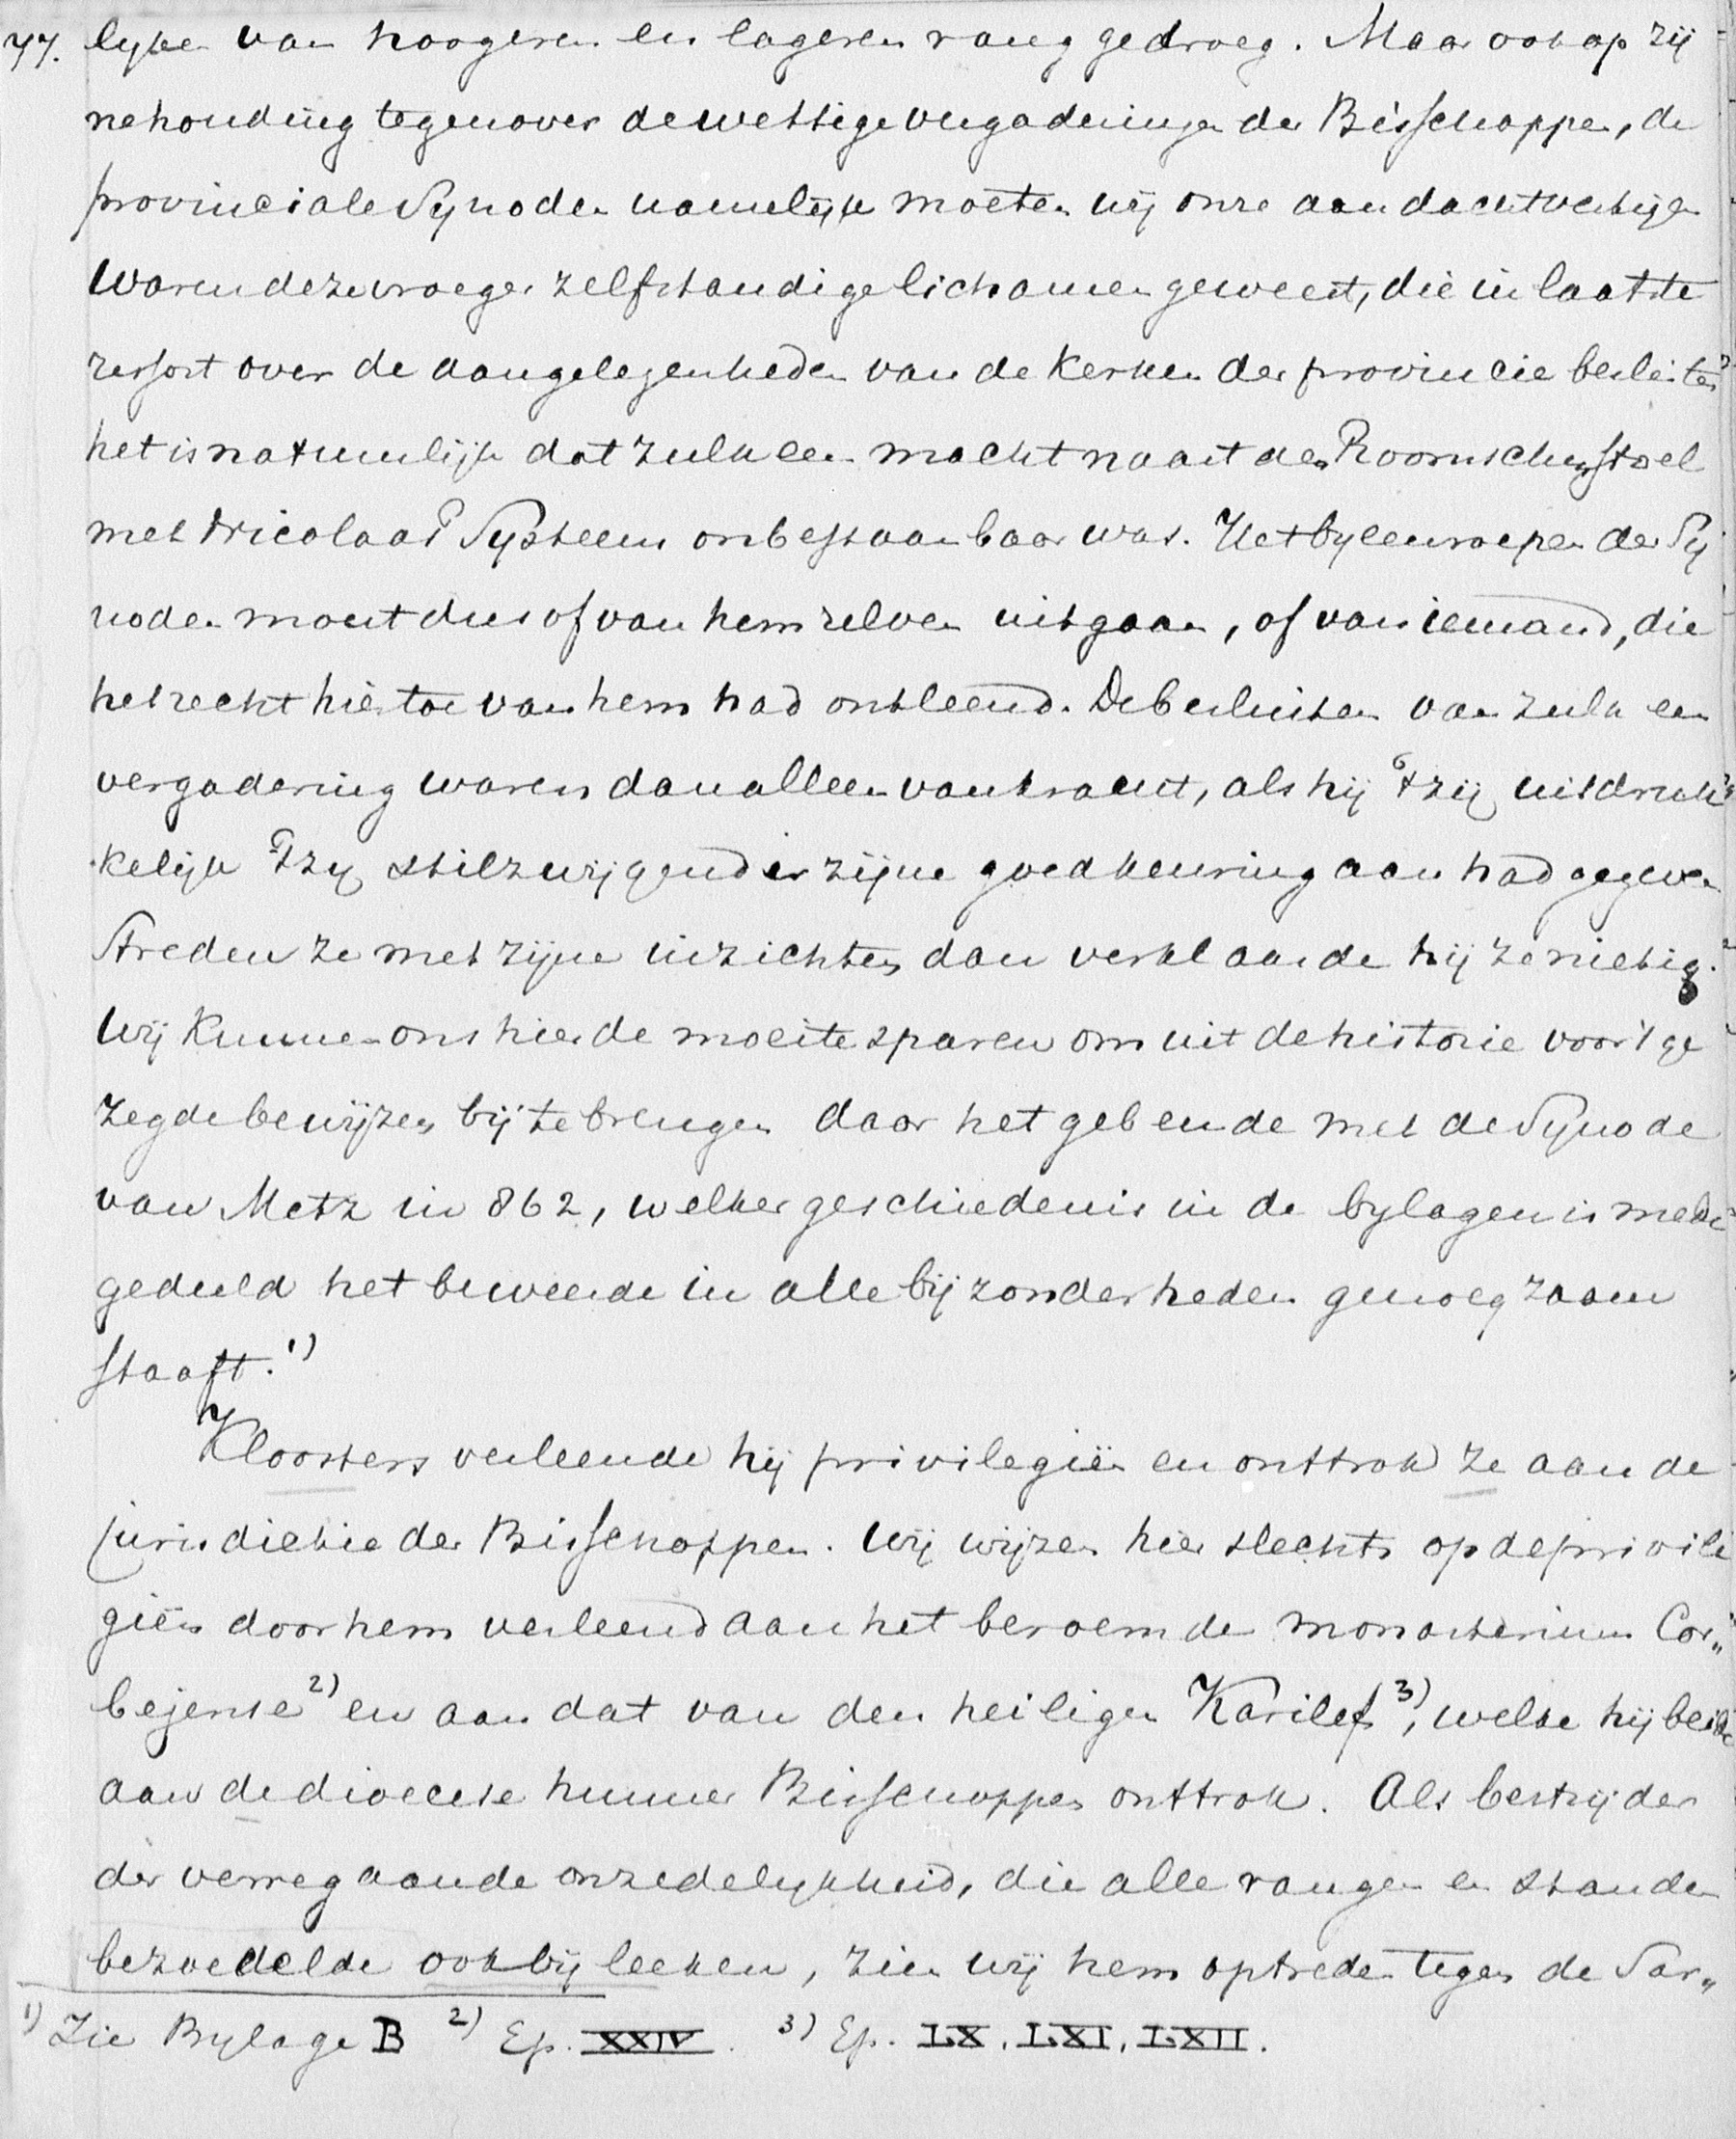 77. lyken van hoogeren en lageren rang gedroeg. Maar ook op zij
ne houding tegenover de wettige vergaderingen der Bisschoppen, de
provinciale Synoden namelijk moeten wij onze aandacht vestigen
Waren deze vroeger zelfstandige lichamen geweest, die in laatste
ressort over de aangelegenheden van de Kerken der provincie beslisten
het is natuurlijk dat zulk een macht naast den Roomschen Stoel
met Nicolaas Systeem onbestaanbaar was. Het byeenroepen der Sy
noden moest dus of van hem zelven uitgaan, of van iemand, die
het recht hiertoe van hem had ontleend. De besluiten van zulk een
vergadering waren dan alleen van kracht, als hij 't zij uitdruk
kelijk 't zij stilzwijgend er zijne goedkeuring aan had gegeven
Streden ze met zijne inzichten dan verklaarde hij ze nietig.
Wij kunnen ons hier de moeite sparen om uit de historie voor 't ge
zegde bewijzen bij te brengen daar het gebeurde met de Synode
van Metz in 862, welker geschiedenis in de bylagen is mede
gedeeld het beweerde in alle bijzonderheden genoegzaam
staaft. 1)
Kloosters verleende hij privilegiën en onttrok ze aan de
jurisdictie der Bisschoppen. Wij wijzen hier slechts op de privile
giën door hem verleend aan het beroemde monasterium Cor„
bejense 2) en aan dat van den heiligen Karilef 3), welke hij beide
aan de dioecese hunner Bisschoppen onttrok. Als bestrijder
der verregaande onzedelykheid, die alle rangen en standen
bezoedelde ook bij leeken, zien wij hem optreden tegen de Sar„
1) Zie Bylage B 2) Ep. XXIV. 3) Ep. LX, LXI, LXII.